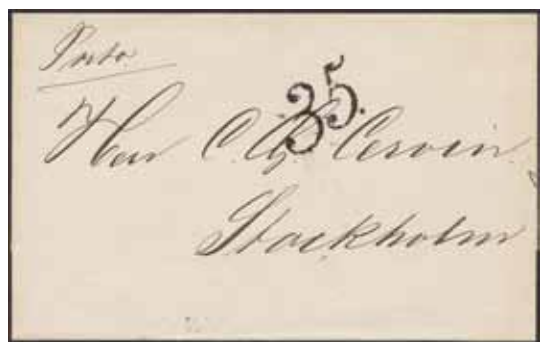 Porto
35.
Herr C. G. Cervin.
Stockholm